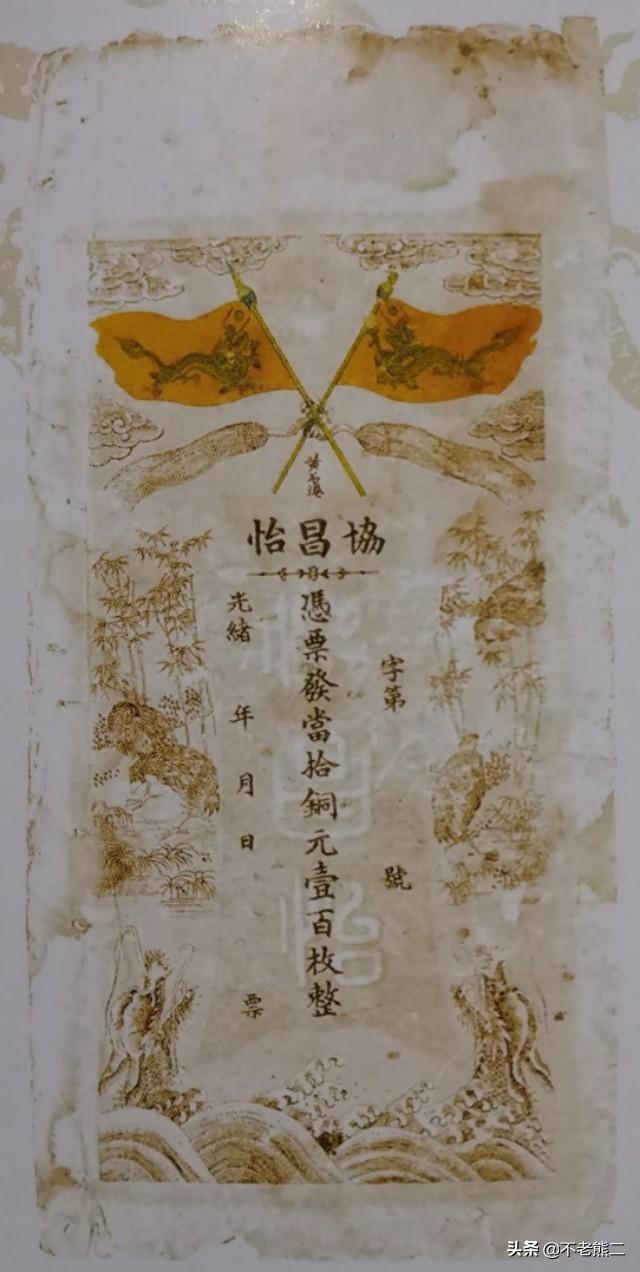 協昌怡
字第 號
憑票發當拾銅元壹百枚整
光緒 年 月 日 票
头条 @不老熊二